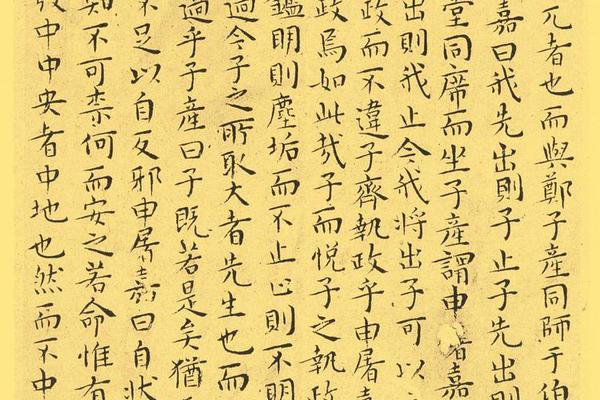 兀者也而與鄭子產同師于伯
嘉曰我先出則子止子先出則
堂同席而坐子產謂申屠嘉
出則我止今我將出子可以
政而不違子齊執政乎申屠嘉
政焉如此哉子而悅子之執政
鑑明則塵垢而不止止則不明
過今子之所取大者先生也而
過乎子產曰子既若是矣猶
不足以自反邪申屠嘉曰自狀
知不可柰何而安之若命惟有
中中安者中地也然而不中